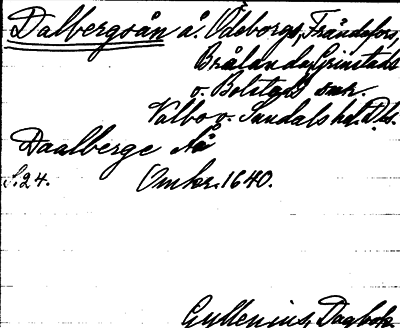 Dalbergsån å. Ödeborgs, Frändefors,
Brålanda, Grinstads
o. Bolstads snr.
Valbo o. Sundals hd. Dls.
Daalberge Åå
S. 24. Omkr. 1640.
Gyllenius, Dagbok.